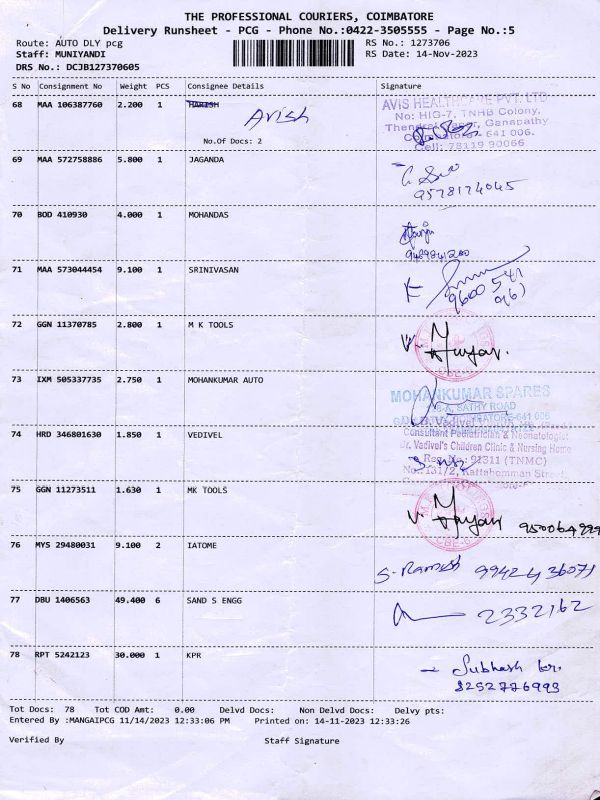 THE PROFESSIONAL COURIERS, COIMBATORE
Delivery Runsheet - PCG - Phone No.:0422-3505555 - Page No.:5
Route: AUTO DLY pcg RS No.: 1273706
Staff: MUNIYANDI RS Date: 14-Nov-2023
DRS No.: DCJB127370605
S No Consignment No Weight PCS Consignee Details Signature
68 MAA 106387760 2.200 1 HARISH
Avish
No.Of Docs: 2
AVIS HEALTHCARE PVT. LTD
No: HIG-7, TNHB Colony,
Ganapathy
641 006.
Cell: 78119 90066
69 MAA 572758886 5.800 1 JAGANDA
9578174045
70 BOD 410930 4.000 1 MOHANDAS
71 MAA 573044454 9.100 1 SRINIVASAN
72 GGN 11370785 2.800 1 M K TOOLS
73 IXM 505337735 2.750 1 MOHANKUMAR AUTO
MOHANKUMAR SPARES
SATHY ROAD
74 HRD 346801630 1.850 1 VEDIVEL
Consultant Pediatrician & Neonatologist
Dr. Vadivel's Children Clinic & Nursing Home
Reg.No: 91311 (TNMC)
No: 131/2, Rattahomman Street
75 GGN 11273511 1.630 1 MK TOOLS
76 MYS 29480031 9.100 2 IATOME
S. Ramesh
77 DBU 1406563 49.400 6 SAND S ENGG
2332162
78 RPT 5242123 30.000 1 KPR
Subhash
8252776993
Tot Docs: 78 Tot COD Amt: 0.00 Delvd Docs: Non Delvd Docs: Delvy pts:
Entered By :MANGAIPCG 11/14/2023 12:33:06 PM Printed on: 14-11-2023 12:33:26
Verified By Staff Signature